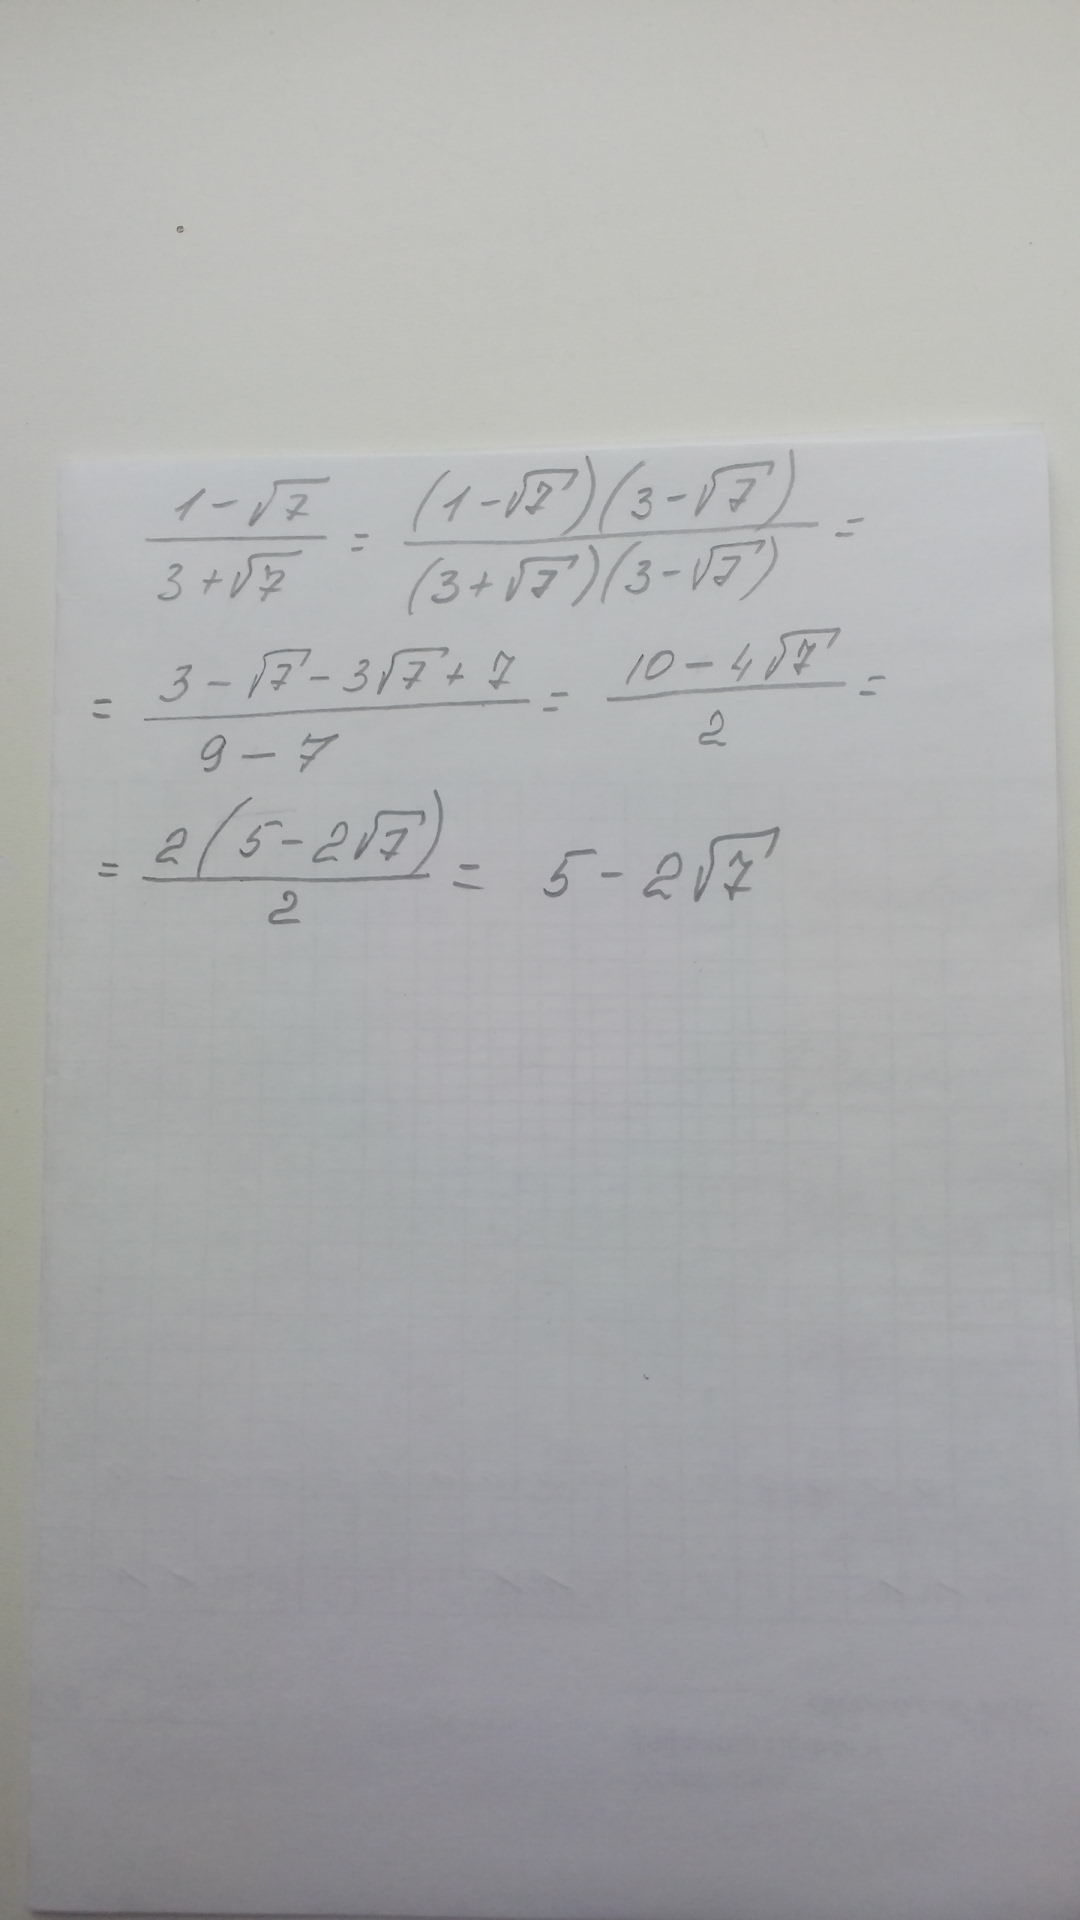 (1-√7)/(3+√7) = ((1-√7)(3-√7))/((3+√7)(3-√7)) =
= (3-√7-3√7+7)/(9-7) = (10-4√7)/2 =
= 2(5-2√7)/2 = 5-2√7